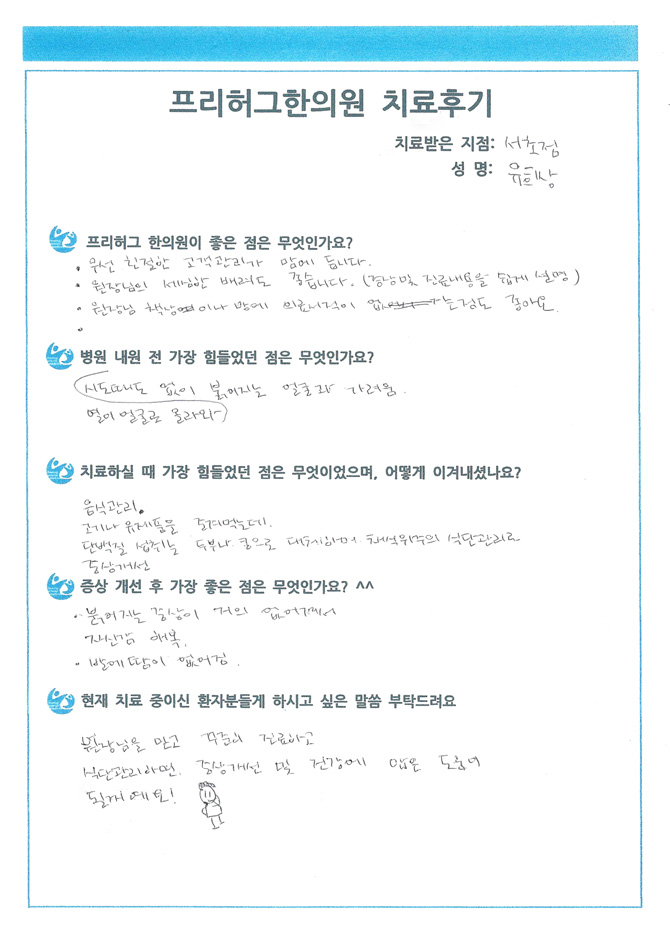 프리허그한의원 치료후기
치료받은 지점: 서초점
성 명: 유희상
프리허그 한의원이 좋은 점은 무엇인가요?
• 우선 친절한 고객관리가 맘에 듭니다.
• 원장님의 세심한 배려도 좋습니다. (증상및 진료내용을 쉽게 설명)
• 원장님 책상이나 방에 의료서적이 는점도 좋아요.
•
병원 내원 전 가장 힘들었던 점은 무엇인가요?
시도때도 없이 붉어지는 얼굴과 가려움.
열이 얼굴로 올라와
치료하실 때 가장 힘들었던 점은 무엇이었으며, 어떻게 이겨내셨나요?
음식관리.
고기나 유제품을 즐겨먹는데.
단백질 섭취는 두부나 콩으로 대체하며 채식위주의 식단관리로
증상개선
증상 개선 후 가장 좋은 점은 무엇인가요? ^^
• 붉어지는 증상이 거의 없어져서
자신감 회복.
• 발에 땀이 없어짐.
현재 치료 중이신 환자분들게 하시고 싶은 말씀 부탁드려요
원장님을 믿고 꾸준히 진료하고
식단관리하면. 증상개선 및 건강에 많은 도움이
될꺼예요!